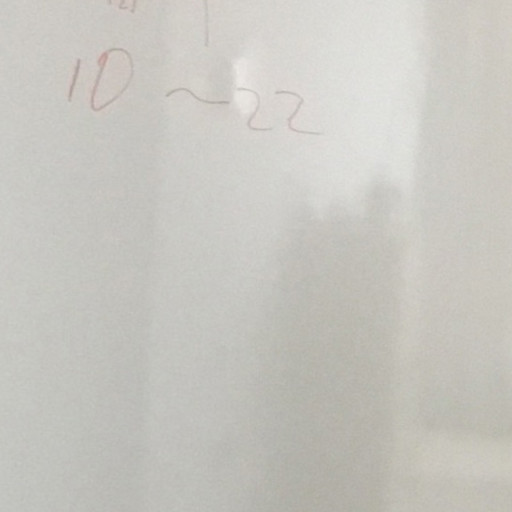 10 ~ 22